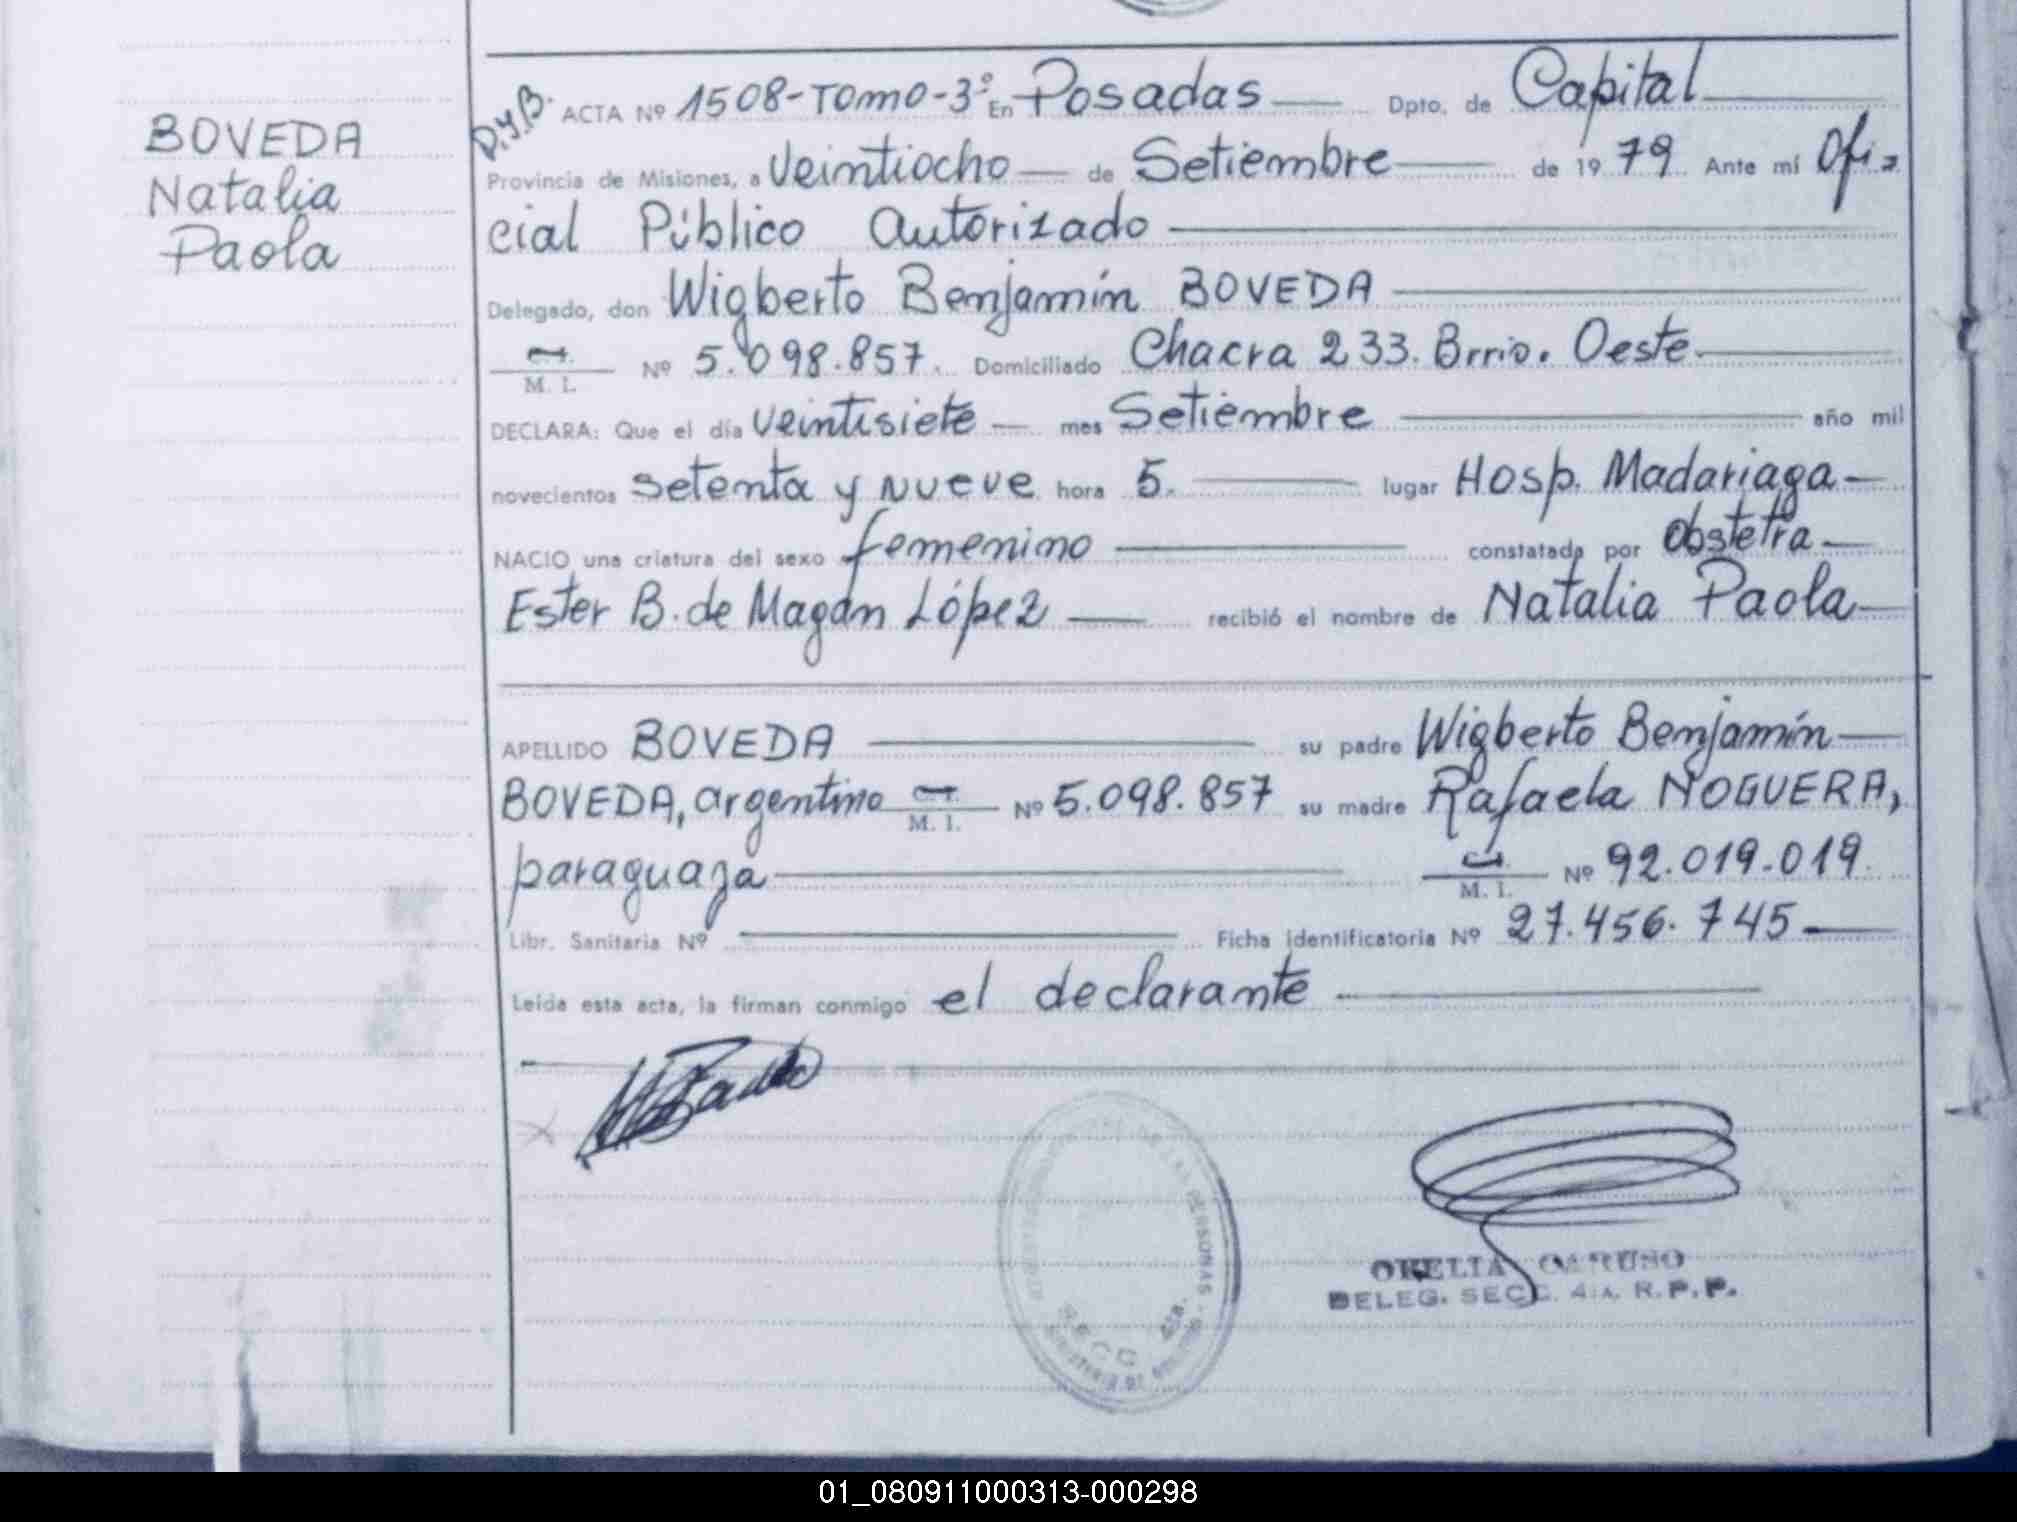 BOVEDA
Natalia
Paola
D.y B. ACTA Nº 1508-TOMO-3º En Posadas Dpto. de Capital
Provincia de Misiones, a Veintiocho de Setiembre de 1979 Ante mí Ofi-
cial Público Autorizado
Delegado, don Wigberto Benjamín BOVEDA
C.I. M. I. Nº 5.098.857. Domiciliado Chacra 233. Brrio. Oeste.
DECLARA: Que el día veintisiete mes Setiembre año mil
novecientos setenta y nueve hora 5. lugar Hosp. Madariaga
NACIO una criatura del sexo femenino constatada por obstetra
Ester B. de Magán López recibió el nombre de Natalia Paola
APELLIDO BOVEDA su padre Wigberto Benjamín
BOVEDA, argentino C.I. M. I. Nº 5.098.857 su madre Rafaela NOGUERA,
paraguaya C.I. M. I. Nº 92.019.019.
Libr. Sanitaria Nº Ficha identificatoria Nº 27.456.745
Leída esta acta, la firman conmigo el declarante
DE LAS PERSONAS
SECC 4ta.
ORELIA CARUSO
DELEG. SECC. 4a. R.P.P.
01_080911000313-000298